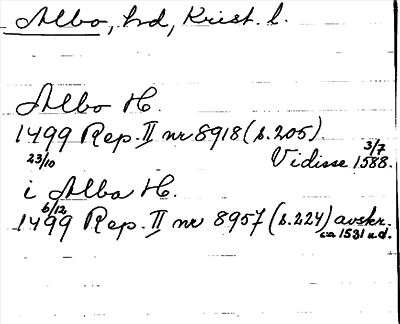 Albo, hd, Krist. l.
Albo H.
1499 Rep. II nr 8918 (s. 205).
23/10 Vidisse 1588. 3/7
i Albo H.
6/12
1499 Rep. II nr 8957 (s. 224) avskr.
ca 1531 u.d.